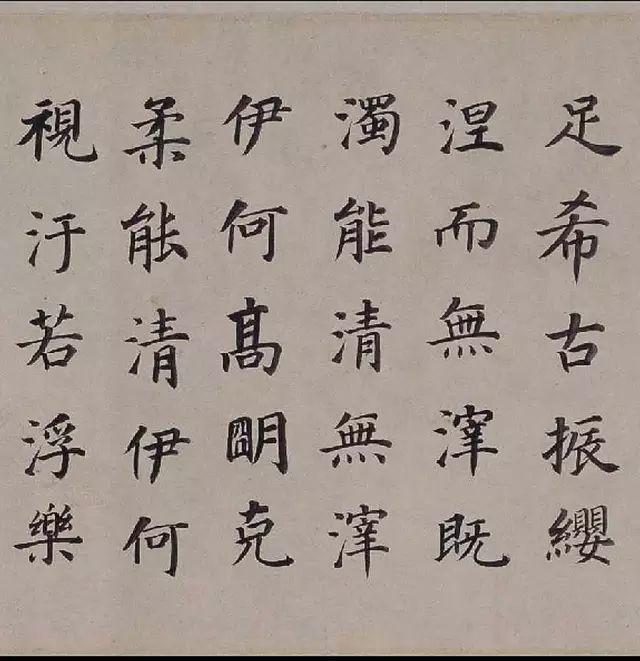 足希古振纓
涅而無滓既
濁能清無滓
伊何高朙克
柔能清伊何
視汙若浮樂